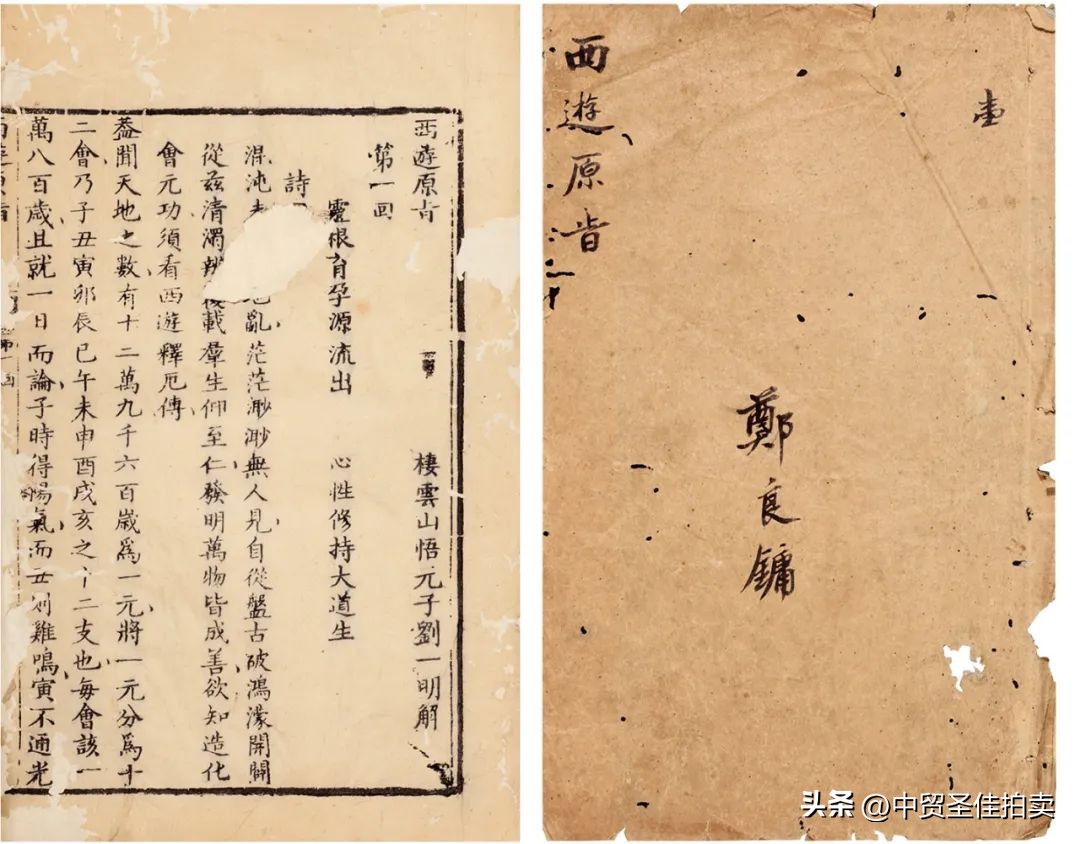 西遊原旨　棲雲山悟元子劉一明解
第一回
靈根育孕源流出　心性修持大道生
詩
混沌未亂茫茫渺渺無人見自從盤古破鴻濛開闢
從茲清濁辨載羣生仰至仁發明萬物皆成善欲知造化
會元功須看西遊釋厄傳
蓋聞天地之數有十二萬九千六百歲爲一元將一元分爲十
二會乃子丑寅卯辰巳午未申酉戌亥之十二支也每會該一
萬八百歲且就一日而論子時得陽氣而丑則雞鳴寅不通光
西遊原旨　第一回
西遊原旨
鄭良鏞
头条 @中贸圣佳拍卖